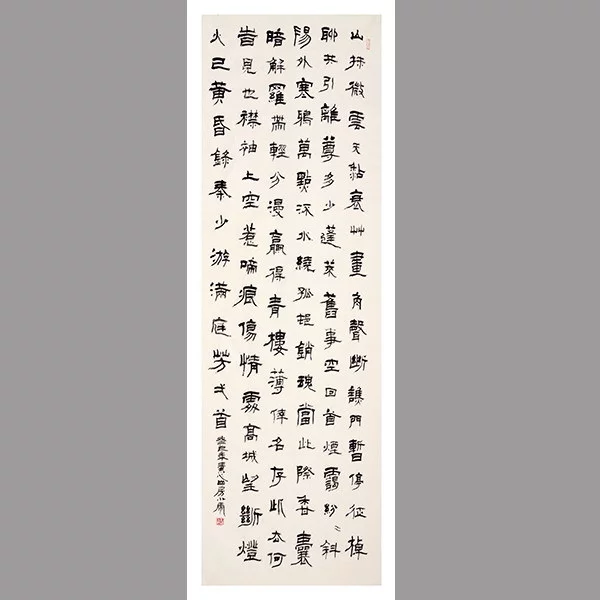 山抹微雲天黏衰艸畫角聲斷譙門暫停征棹
聊共引離尊多少蓬萊舊事空回首煙靄紛〻斜
陽外寒鴉萬點流水繞孤邨銷魂當此際香囊
暗解羅帶輕分漫贏得青樓薄倖名存此去何
旹見也襟袖上空惹啼痕傷情處高城望斷燈
火已黃昏錄秦少游滿庭芳弌首